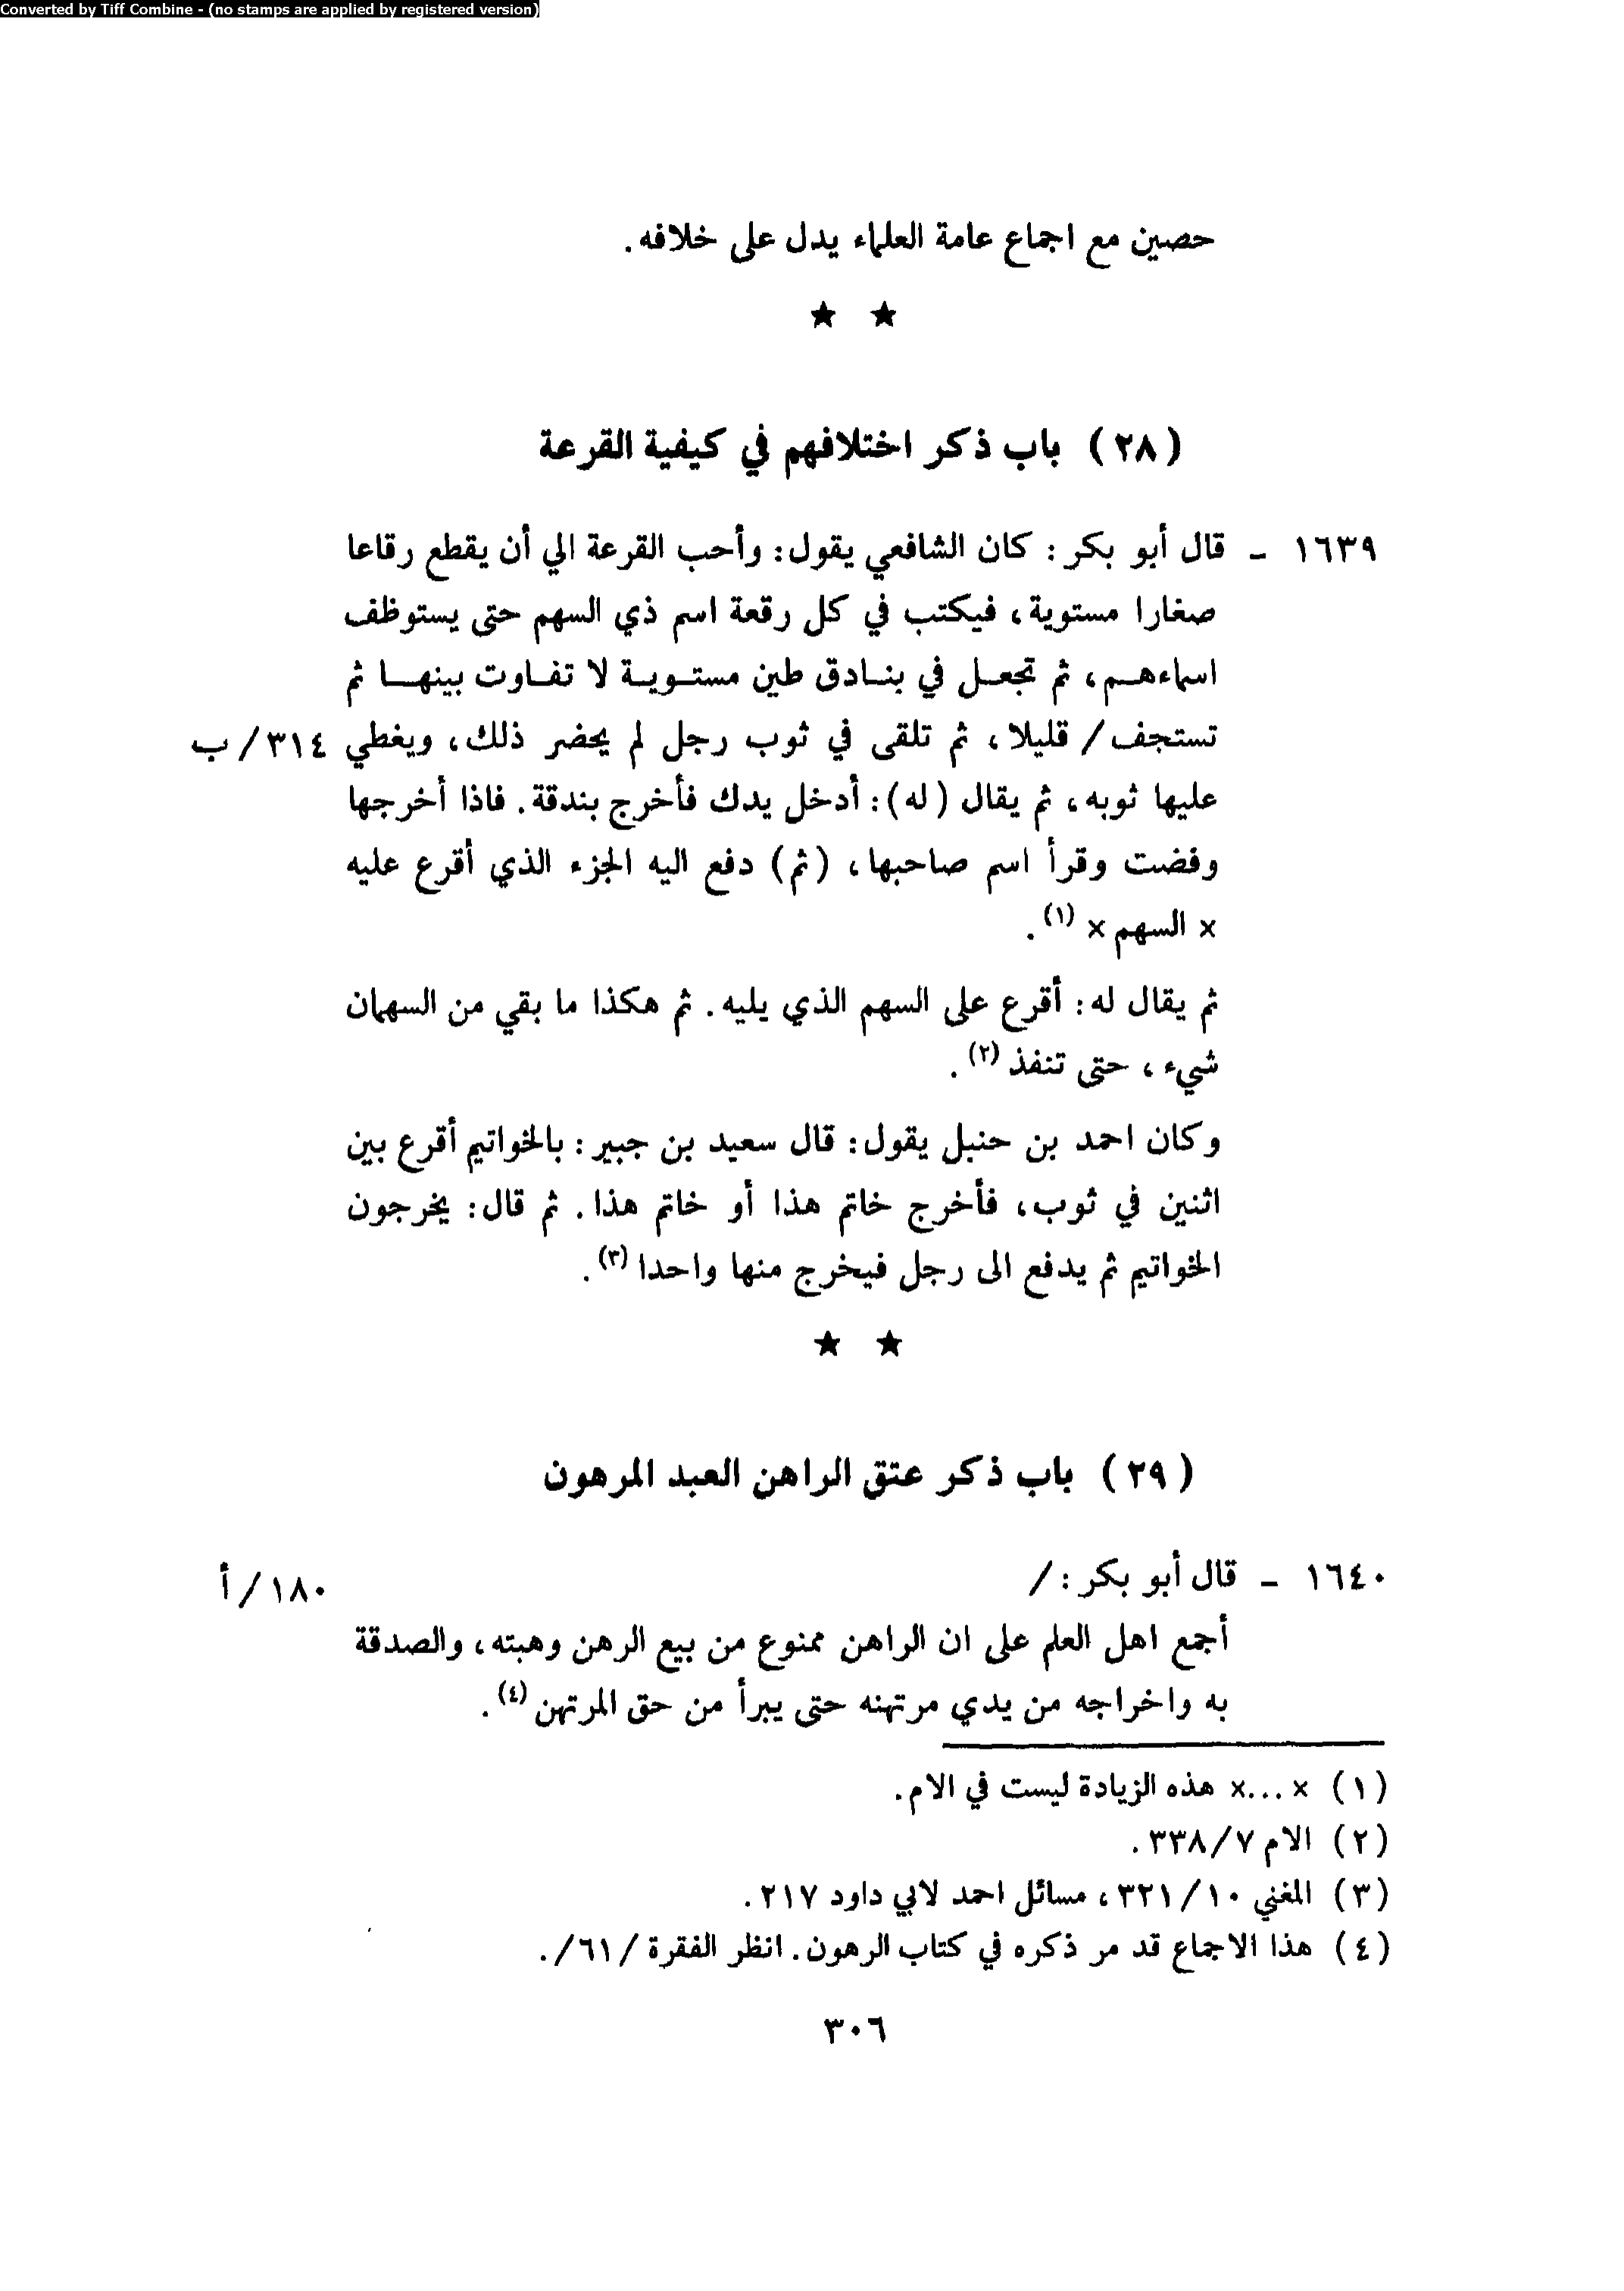 Converted by Tiff Combine - (no stamps are applied by registered version)
حصين مع اجماع عامة العلماء يدل على خلافه.
★ ★
(٢٨) باب ذكر اختلافهم في كيفية القرعة
١٦٣٩ - قال أبو بكر: كان الشافعي يقول: وأحب القرعة الي أن يقطع رقاعا
صغارا مستوية، فيكتب في كل رقعة اسم ذي السهم حتى يستوظف
اسماءهم، ثم تجعل في بنادق طين مستوية لا تفاوت بينها ثم
تستجف/ قليلا، ثم تلقى في ثوب رجل لم يحضر ذلك، ويغطي ٣١٤/ب
عليها ثوبه، ثم يقال (له): أدخل يدك فأخرج بندقة. فاذا أخرجها
وفضت وقرأ اسم صاحبها، (ثم) دفع اليه الجزء الذي أقرع عليه
× السهم × (١).
ثم يقال له: أقرع على السهم الذي يليه. ثم هكذا ما بقي من السهمان
شيء، حتى تنفذ (٢).
وكان احمد بن حنبل يقول: قال سعيد بن جبير: بالخواتيم أقرع بين
اثنين في ثوب، فأخرج خاتم هذا أو خاتم هذا. ثم قال: يخرجون
الخواتيم ثم يدفع الى رجل فيخرج منها واحدا (٣).
★ ★
(٢٩) باب ذكر عتق الراهن العبد المرهون
١٦٤٠ - قال أبو بكر:/ ١٨٠/أ
أجمع اهل العلم على ان الراهن ممنوع من بيع الرهن وهبته، والصدقة
به واخراجه من يدي مرتهنه حتى يبرأ من حق المرتهن (٤).
(١) ×...× هذه الزيادة ليست في الام.
(٢) الام ٣٣٨/٧.
(٣) المغني ٣٢١/١٠، مسائل احمد لابي داود ٢١٧.
(٤) هذا الاجماع قد مر ذكره في كتاب الرهون. انظر الفقرة /٦١/.
٣٠٦